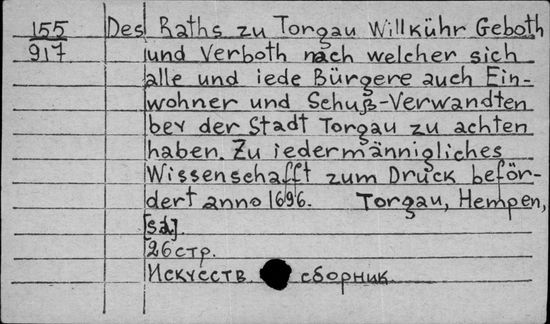 155
917
Des Raths zu Torgau Willkühr Geboth
und Verboth nach welcher sich
alle und iede Bürgere auch Ein-
wohner und Schuß-Verwandten
bey der Stadt Torgau zu achten
haben. Zu iedermännigliches
Wissenschafft zum Druck beför-
dert anno 1696. Torgau, Hempen,
[sd].
26 стр.
Искусств сборник.